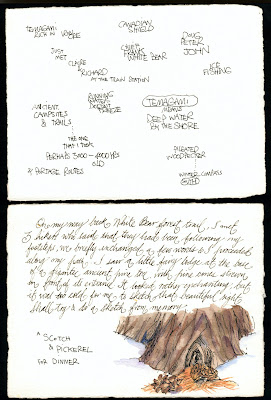 TEMAGAMI
RICH IN
CREE
CANADIAN
SHIELD
DOUG
PETER
JOHN
JUST
MET
CLAIRE
&
RICHARD
AT THE TRAIN STATION
CHIEF
WHITE BEAR
ICE
FISHING
RUNNING
WATER
ANCIENT
CAMPSITES
& TRAILS
TEMAGAMI
MEANS
DEEP WATER
BY THE SHORE
THE ONE
THAT I TOOK
PERHAPS 3000-4000 YRS
OLD
PILEATED
WOODPECKER
& PORTAGE ROUTES
WINTER CAMPERS
On my way back White Bear forest trail, I met
2 people who said that they had been following my
footsteps, we briefly exchanged a few words & I proceeded
along my path. I saw a little fairy lodge at the base
of a gigantic ancient pine tree with pine cones strewn
in front of its entrance. It looked really enchanting but
it was too cold for me to sketch that beautiful sight.
Shall try & do a sketch from memory.
SCOTCH
&
PICKEREL
FOR DINNER